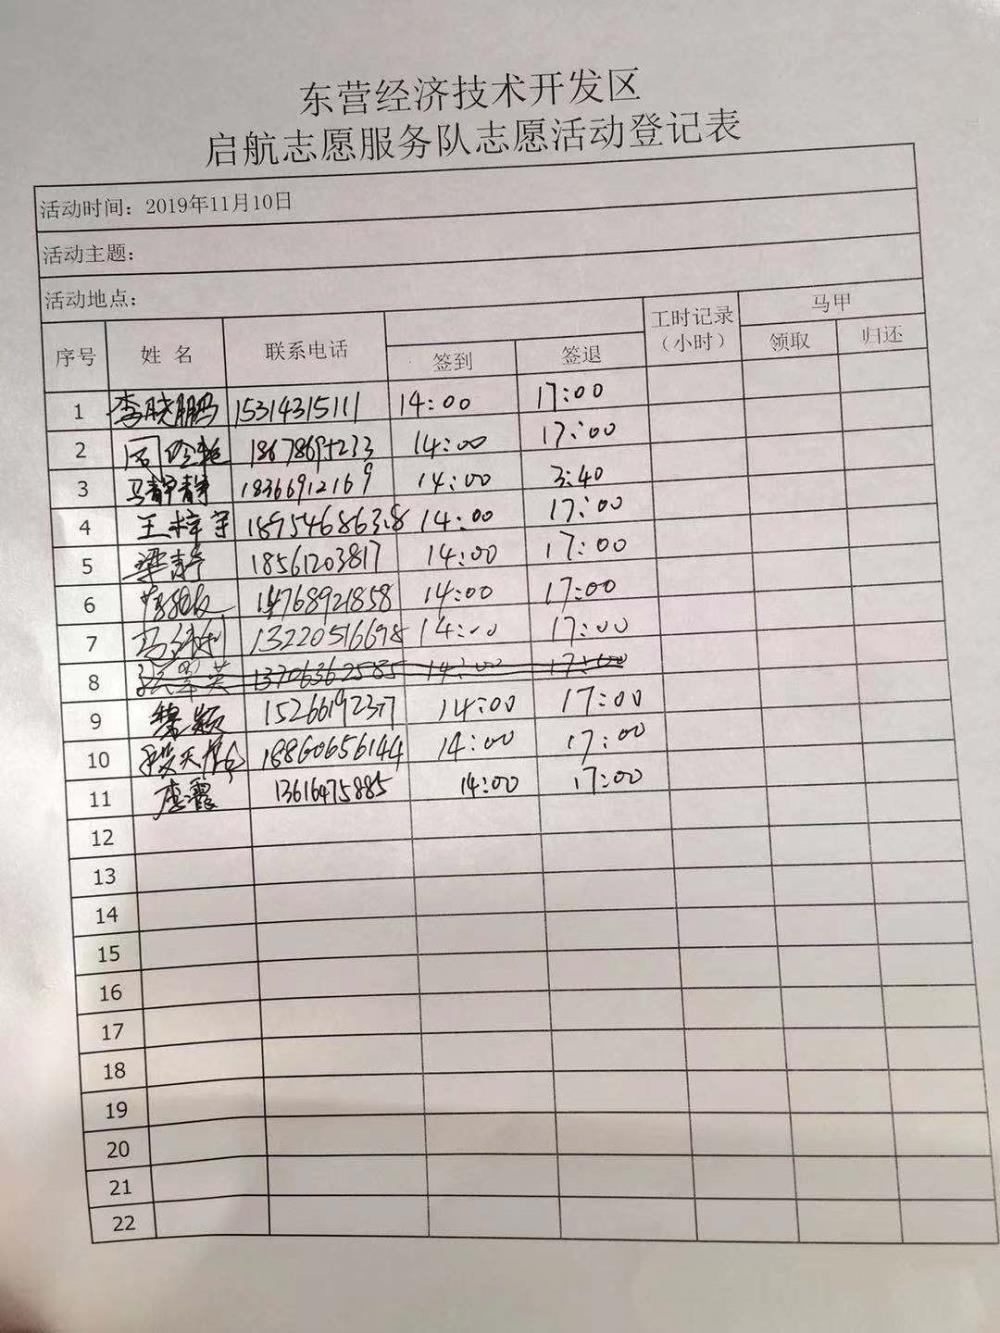 东营经济技术开发区
启航志愿服务队志愿活动登记表
活动时间：2019年11月10日
活动主题：
活动地点：
序号 姓名 联系电话 签到 签退 工时记录（小时） 马甲 领取 归还
1 李晓鹏 15314315111 14:00 17:00
2 14:00 17:00
3 马静静 18366912169 14:00 3:40
4 王梓宇 14:00 17:00
5 梁静 18561203817 14:00 17:00
6 14768921858 14:00 17:00
7 13220516698 14:00 17:00
8 13706362585 14:00 17:00
9 14:00 17:00
10 18860656144 14:00 17:00
11 13616475885 14:00 17:00
12
13
14
15
16
17
18
19
20
21
22